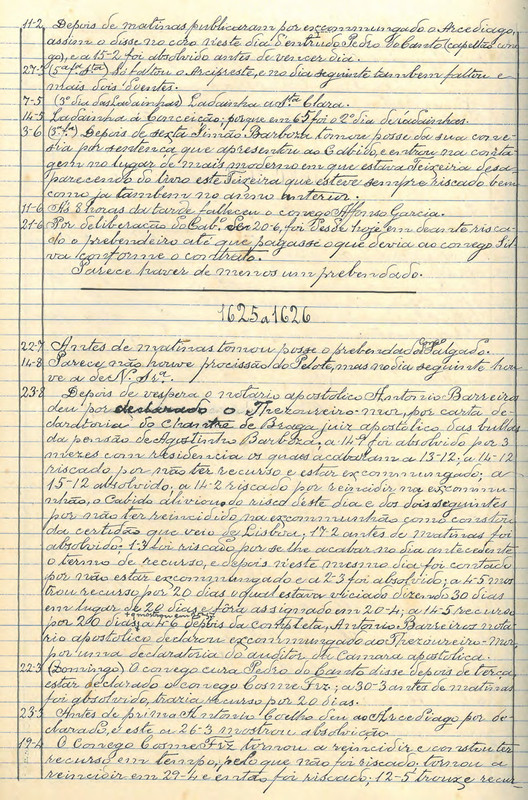 11-2 Depois de matinas publicaram por excommungado o Arcediago,
assim o disse no coro neste dia d'entrudo Pedro do Canto (capellas
go), e a 15-2 foi absolvido antes de vencer dia.
27-3 (5ª fª Stª) Não faltou o Arcipreste, e no dia seguinte tambem faltou e
mais dois doentes.
7-5 (3º dia das Ladainhas) Ladainha a Stª Clara.
14-5 Ladainha á Conceição; porque em 6-5 foi o 2º dia de ladainhas.
3-6 Depois de sexta Simão Barboza tomou posse da sua cone-
sia por sentença que apresentou ao Cabido, e entrou na conta-
gem no lugar de mais moderno em que estava Teixeira desa-
parecendo do livro este Teixeira que esteve sempre riscado bem
como já tambem no anno anterior.
11-6 A's 8 horas da tarde falleceu o conego Affonso Garcia.
21-6 Por deliberação do Cab.º de 20-6, foi desde hoje em deante risca-
do o prebendeiro até que pagasse o que devia ao conego Sil-
va conforme o contrato.
Parece haver de menos um prebendado.
1625 a 1626
22-7 Antes de matinas tomou posse o prebendado Salgado.
14-8 Parece não houve procissão do Pelote, mas no dia seguinte hou-
ve a de N. Srª.
23-8 Depois de vespera o notario apostolico Antonio Barreiros
deu por declarado o Thezoureiro-mor, por carta de-
claratoria do Chantre de Braga juiz apostolico das bullas
da pensão de Agostinho Barboza; a 14-9 foi absolvido por 3
mezes com residencia os quaes acabaram a 13-12; a 14-12
riscado por não ter recurso e estar excommungado; a
15-12 absolvido; a 14-2 riscado por reincidir na excommu-
nhão, o Cabido aliviou do risco deste dia e dos dois seguintes
por não ter reincidido na excommunhão como constou
da certidão que veio de Lisboa; 17-2 antes de matinas foi
absolvido; 1-3 foi riscado por se lhe acabar no dia antecedente
o termo de recurso, e depois neste mesmo dia foi contado
por não estar excommungado e a 2-3 foi absolvido; a 4-5 mos-
trou recurso por 20 dias o qual estava viciado dizendo 30 dias
em lugar de 20 dias e fôra assignado em 20-4; a 14-5 recurso
por 20 dias; a 4-6 depois da Completa, Antonio Barreiros nota-
rio apostolico declarou excommungado ao Thezoureiro-Mor
por uma declaratoria do auditor da Camara apostolica.
22-3 (Domingo) O conego cura Pedro do Canto disse depois de terça,
estar declarado o conego Cosme Frz.; a 30-3 antes de matinas
foi absolvido, trazia recurso por 20 dias.
23-3 Antes de prima Antonio Coelho deu ao Arcediago por de-
clarado, e este a 26-3 mostrou absolvição.
19-4 O Conego Cosme Frz tornou a reincidir e constou ter
recurso em tempo, pelo que não foi riscado; tornou a
reincidir em 29-4 e então foi riscado; 12-5 trouxe recur-